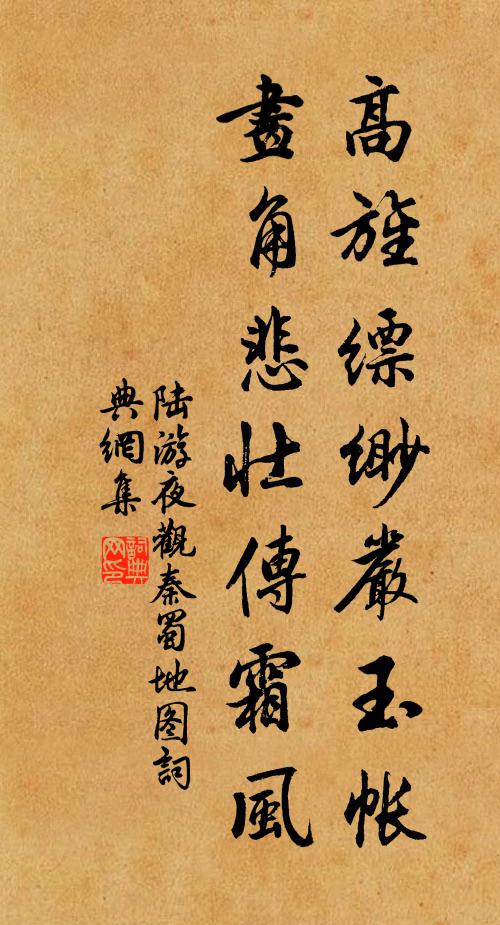 高旌縹緲嚴玉帳
畫角悲壯傳霜風
陆游夜觀秦蜀地图詞
典網集
詞典
网印